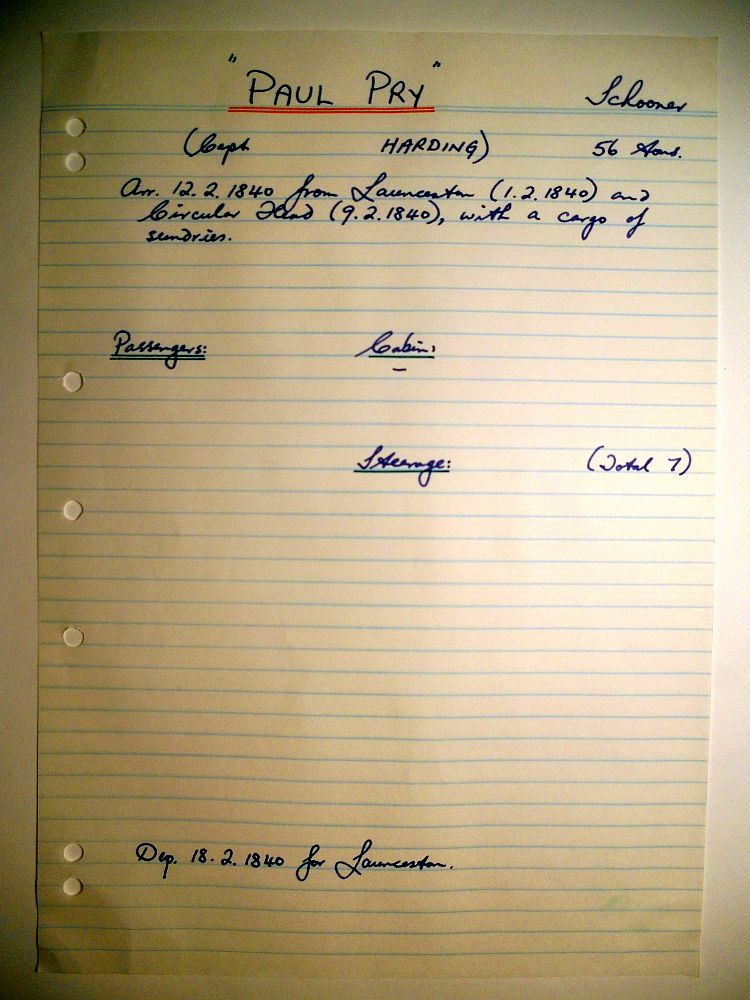 "PAUL PRY" Schooner
(Capt HARDING) 56 tons.
Arr. 12.2.1840 from Launceston (1.2.1840) and
Circular Head (9.2.1840), with a cargo of
sundries.
Passengers: Cabin:
–
Steerage: (Total 7)
Dep. 18.2.1840 for Launceston.